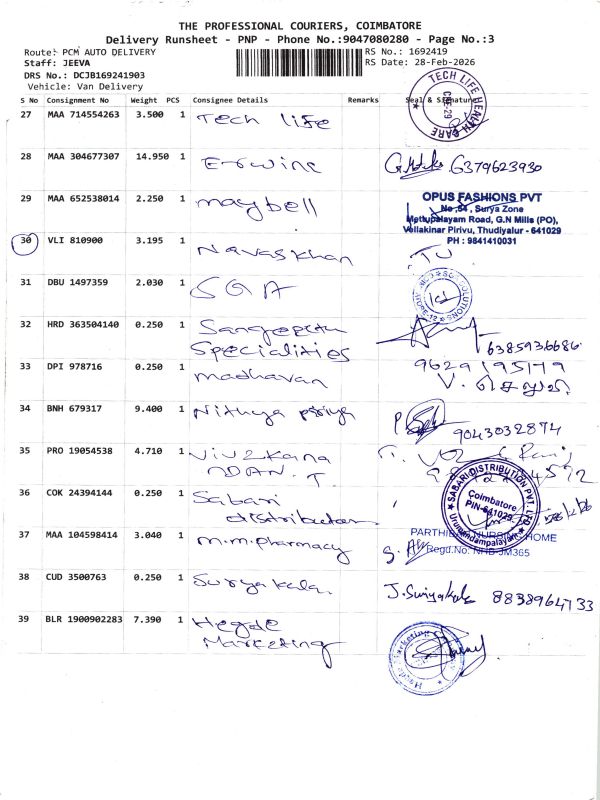 THE PROFESSIONAL COURIERS, COIMBATORE
Delivery Runsheet - PNP - Phone No.:9047080280 - Page No.:3
Route: PCM AUTO DELIVERY
Staff: JEEVA
DRS No.: DCJB169241903
Vehicle: Van Delivery
RS No.: 1692419
RS Date: 28-Feb-2026
S No Consignment No Weight PCS Consignee Details Remarks Seal & Signature
27 MAA 714554263 3.500 1 Tech life
TECH LIFE HEALTH CARE
CBE-29
28 MAA 304677307 14.950 1 Erwine 6379623930
29 MAA 652538014 2.250 1 maybell
OPUS FASHIONS PVT
No.,54, Surya Zone
Mettupalayam Road, G.N Mills (PO),
Vellakinar Pirivu, Thudiyalur - 641029
PH : 9841410031
30 VLI 810900 3.195 1 Navaskhan
31 DBU 1497359 2.030 1 SGA
32 HRD 363504140 0.250 1 Sangeetha
Specialities 6385936686
33 DPI 978716 0.250 1 madhavan
9629195179
V. செல்வி
34 BNH 679317 9.400 1 Nithya priya 9043032874
35 PRO 19054538 4.710 1 Vivekana
NDAN. T
36 COK 24394144 0.250 1 Sabari
distributors
SABARI DISTRIBUTION PVT. LTD
Coimbatore
PIN-641029
Urumandampalayam
37 MAA 104598414 3.040 1 m.m.pharmacy
PARTHIBAN NURSING HOME
Regd.No: NHB JM365
38 CUD 3500763 0.250 1 Suryakala. J. Suriyakala 8838964733
39 BLR 1900902283 7.390 1 Hegde
Marketing
Hegde Marketing